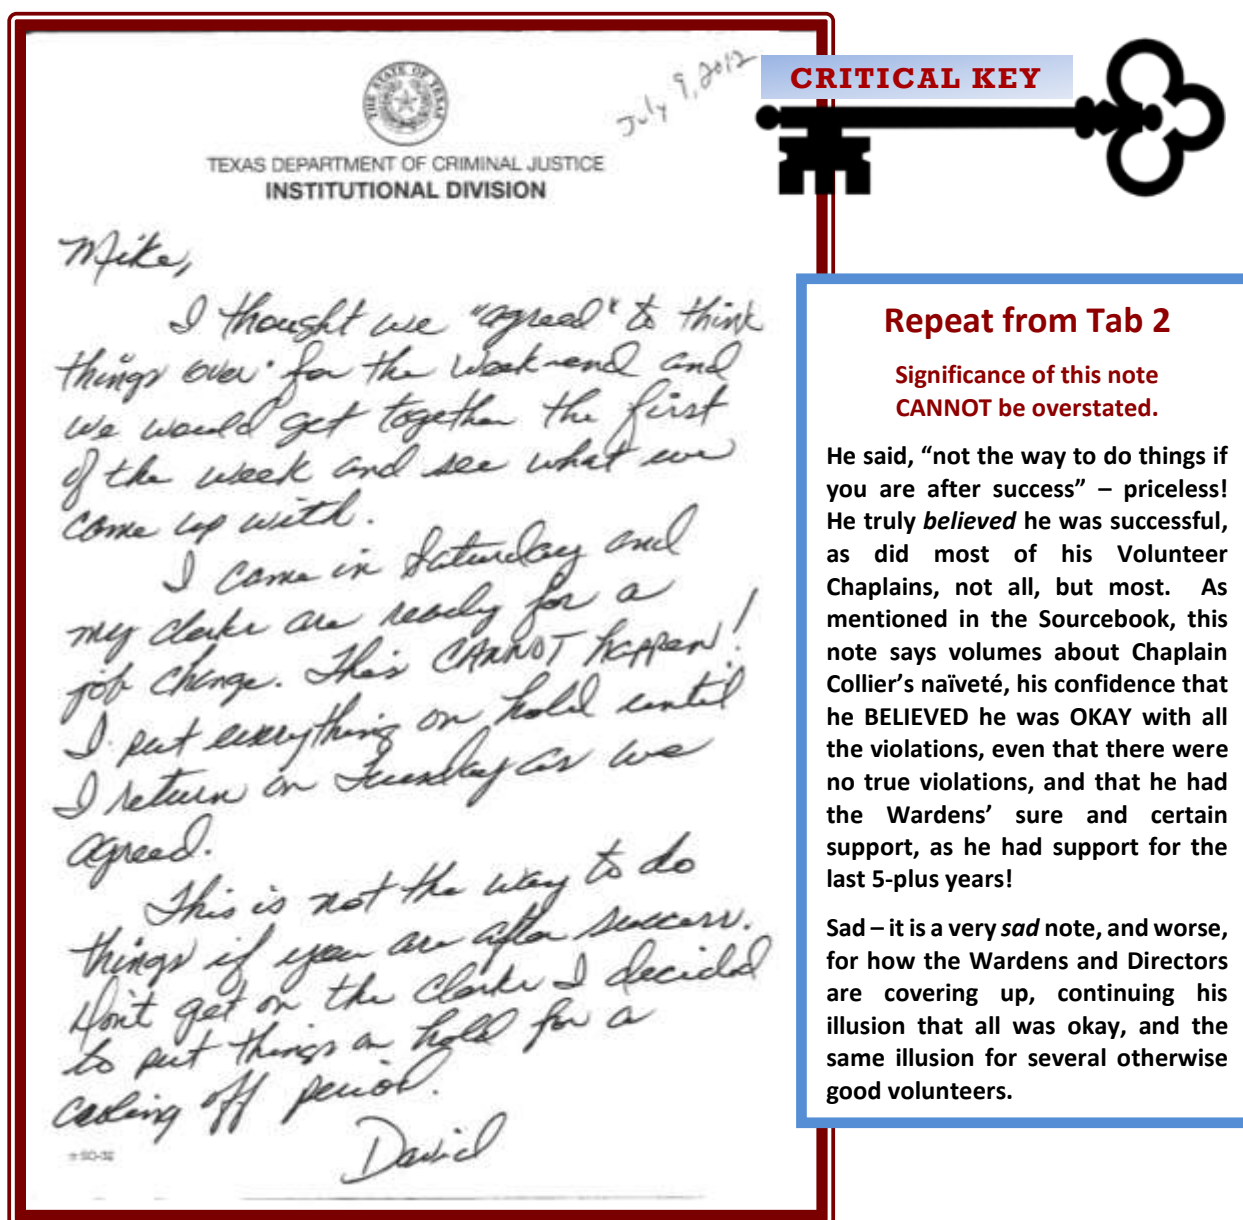 July 9, 2012
THE STATE OF TEXAS
TEXAS DEPARTMENT OF CRIMINAL JUSTICE
INSTITUTIONAL DIVISION
Mike,
I thought we "agreed" to think
things over for the week-end and
we would get together the first
of the week and see what we
come up with.
I came in Saturday and
my clerks are ready for a
job change. This CANNOT HAPPEN!
I put everything on hold until
I return on Tuesday as we
agreed.
This is not the way to do
things if you are after success.
Don't get on the Clerks I decided
to put things on hold for a
cooling off period.
David
CRITICAL KEY
Repeat from Tab 2
Significance of this note
CANNOT be overstated.
He said, “not the way to do things if
you are after success” – priceless!
He truly believed he was successful,
as did most of his Volunteer
Chaplains, not all, but most. As
mentioned in the Sourcebook, this
note says volumes about Chaplain
Collier’s naïveté, his confidence that
he BELIEVED he was OKAY with all
the violations, even that there were
no true violations, and that he had
the Wardens’ sure and certain
support, as he had support for the
last 5-plus years!
Sad – it is a very sad note, and worse,
for how the Wardens and Directors
are covering up, continuing his
illusion that all was okay, and the
same illusion for several otherwise
good volunteers.